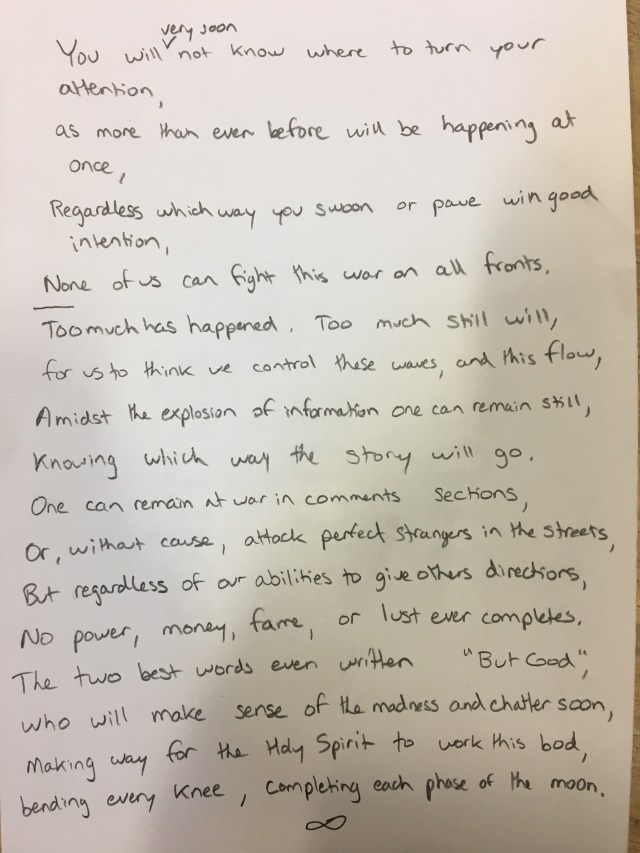 very soon
You will ✓ not know where to turn your
attention,
as more than ever before will be happening at
once,
Regardless which way you swoon or pave win good
intention,
None of us can fight this war on all fronts.
Too much has happened. Too much still will,
for us to think we control these waves, and this flow,
Amidst the explosion of information one can remain still,
Knowing which way the story will go.
One can remain at war in comments sections,
Or, without cause, attack perfect strangers in the streets,
But regardless of our abilities to give others directions,
No power, money, fame, or lust ever completes.
The two best words ever written "But God",
who will make sense of the madness and chatter soon,
Making way for the Holy Spirit to work this bod,
bending every knee, completing each phase of the moon.
∞